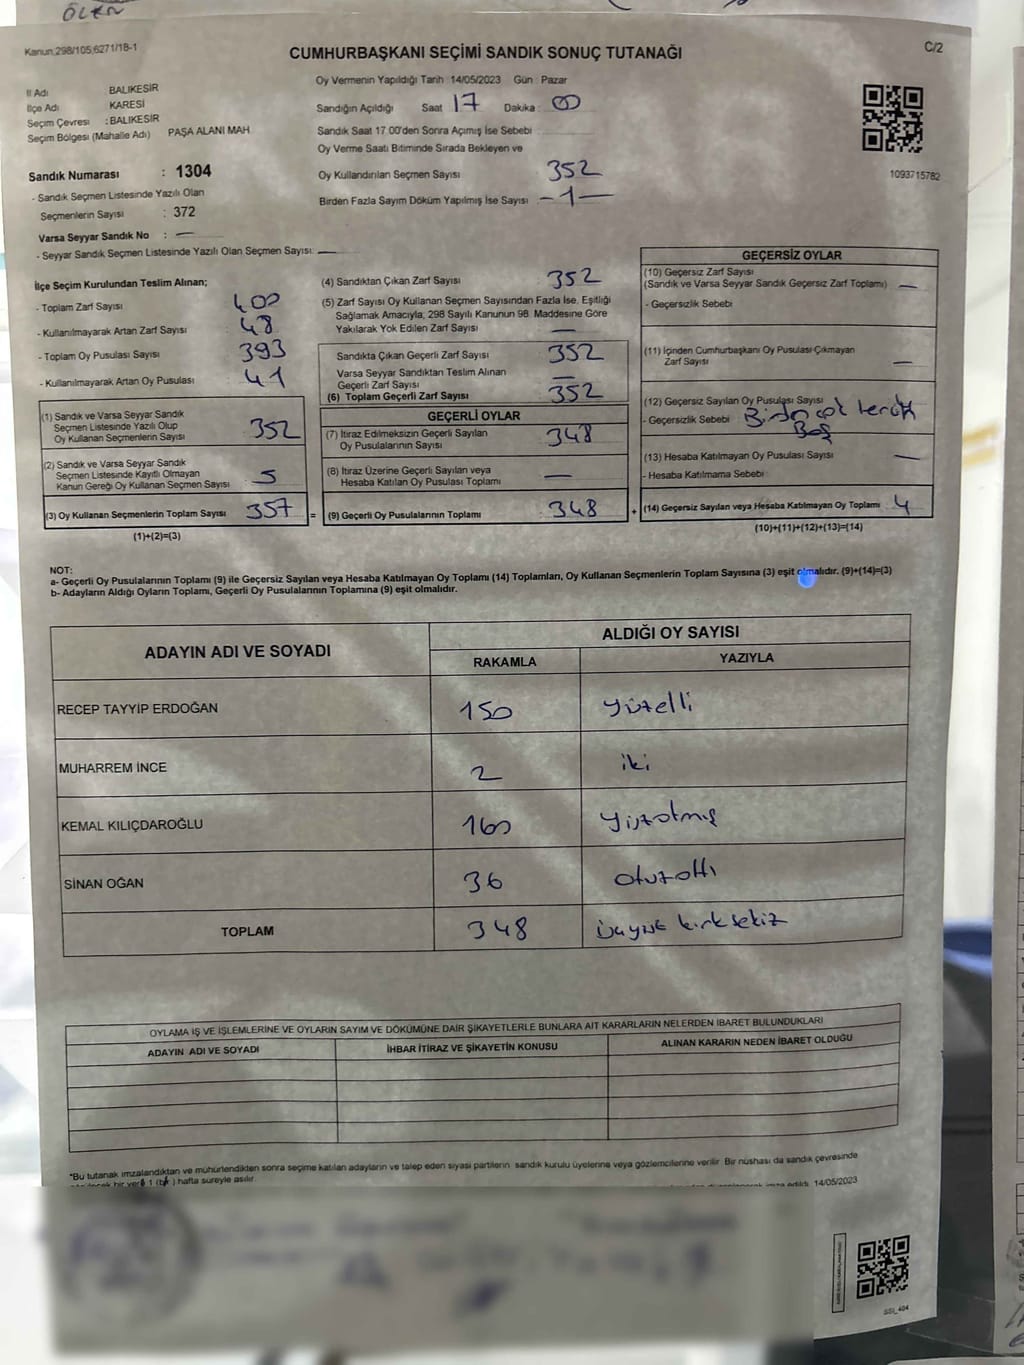 ÖLEN
Kanun;298/105,6271/18-1
C/2
CUMHURBAŞKANI SEÇİMİ SANDIK SONUÇ TUTANAĞI
İl Adı : BALIKESİR
İlçe Adı : KARESİ
Seçim Çevresi : BALIKESİR
Seçim Bölgesi (Mahalle Adı) PAŞA ALANI MAH.
Sandık Numarası : 1304
- Sandık Seçmen Listesinde Yazılı Olan
Seçmenlerin Sayısı : 372
Varsa Seyyar Sandık No : —
- Seyyar Sandık Seçmen Listesinde Yazılı Olan Seçmen Sayısı: —
Oy Vermenin Yapıldığı Tarih 14/05/2023 Gün : Pazar
Sandığın Açıldığı Saat 17 Dakika : 00
Sandık Saat 17.00'den Sonra Açımış İse Sebebi :
Oy Verme Saati Bitiminde Sırada Bekleyen ve
Oy Kullandırılan Seçmen Sayısı 352
Birden Fazla Sayım Döküm Yapılmış İse Sayısı : —1—
1093715782
İlçe Seçim Kurulundan Teslim Alınan;
- Toplam Zarf Sayısı 400
- Kullanılmayarak Artan Zarf Sayısı : 48
- Toplam Oy Pusulası Sayısı : 393
- Kullanılmayarak Artan Oy Pusulası : 41
(1) Sandık ve Varsa Seyyar Sandık
Seçmen Listesinde Yazılı Olup
Oy Kullanan Seçmenlerin Sayısı : 352
(2) Sandık ve Varsa Seyyar Sandık
Seçmen Listesinde Kayıtlı Olmayan
Kanun Gereği Oy Kullanan Seçmen Sayısı : 5
(3) Oy Kullanan Seçmenlerin Toplam Sayısı : 357 =
(1)+(2)=(3)
(4) Sandıktan Çıkan Zarf Sayısı : 352
(5) Zarf Sayısı Oy Kullanan Seçmen Sayısından Fazla İse, Eşitliği
Sağlamak Amacıyla, 298 Sayılı Kanunun 98. Maddesine Göre
Yakılarak Yok Edilen Zarf Sayısı : —
Sandıkta Çıkan Geçerli Zarf Sayısı : 352
Varsa Seyyar Sandıktan Teslim Alınan
Geçerli Zarf Sayısı : —
(6) Toplam Geçerli Zarf Sayısı : 352
GEÇERLİ OYLAR
(7) İtiraz Edilmeksizin Geçerli Sayılan
Oy Pusulalarının Sayısı : 348
(8) İtiraz Üzerine Geçerli Sayılan veya
Hesaba Katılan Oy Pusulası Toplamı : —
(9) Geçerli Oy Pusulalarının Toplamı : 348 +
GEÇERSİZ OYLAR
(10) Geçersiz Zarf Sayısı
(Sandık ve Varsa Seyyar Sandık Geçersiz Zarf Toplamı) : —
- Geçersizlik Sebebi :
(11) İçinden Cumhurbaşkanı Oy Pusulası Çıkmayan
Zarf Sayısı : —
(12) Geçersiz Sayılan Oy Pusulası Sayısı :
- Geçersizlik Sebebi : Birden çok tercih
Boş
(13) Hesaba Katılmayan Oy Pusulası Sayısı : —
- Hesaba Katılmama Sebebi :
(14) Geçersiz Sayılan veya Hesaba Katılmayan Oy Toplamı : 4
(10)+(11)+(12)+(13)=(14)
NOT:
a- Geçerli Oy Pusulalarının Toplamı (9) ile Geçersiz Sayılan veya Hesaba Katılmayan Oy Toplamı (14) Toplamları, Oy Kullanan Seçmenlerin Toplam Sayısına (3) eşit olmalıdır. (9)+(14)=(3)
b- Adayların Aldığı Oyların Toplamı, Geçerli Oy Pusulalarının Toplamına (9) eşit olmalıdır.
ADAYIN ADI VE SOYADI
ALDIĞI OY SAYISI
RAKAMLA YAZIYLA
RECEP TAYYİP ERDOĞAN 150 yüzelli
MUHARREM İNCE 2 iki
KEMAL KILIÇDAROĞLU 160 yüzatmış
SİNAN OĞAN 36 otuzaltı
TOPLAM 348 üçyüz kırksekiz
OYLAMA İŞ VE İŞLEMLERİNE VE OYLARIN SAYIM VE DÖKÜMÜNE DAİR ŞİKAYETLERLE BUNLARA AİT KARARLARIN NELERDEN İBARET BULUNDUKLARI
ADAYIN ADI VE SOYADI İHBAR İTİRAZ VE ŞİKAYETİN KONUSU ALINAN KARARIN NEDEN İBARET OLDUĞU
*Bu tutanak imzalandıktan ve mühürlendikten sonra seçime katılan adayların ve talep eden siyasi partilerin sandık kurulu üyelerine veya gözlemcilerine verilir. Bir nüshası da sandık çevresinde
bir yere 1 (bir) hafta süreyle asılır.
imza edildi. 14/05/2023
SSI_404